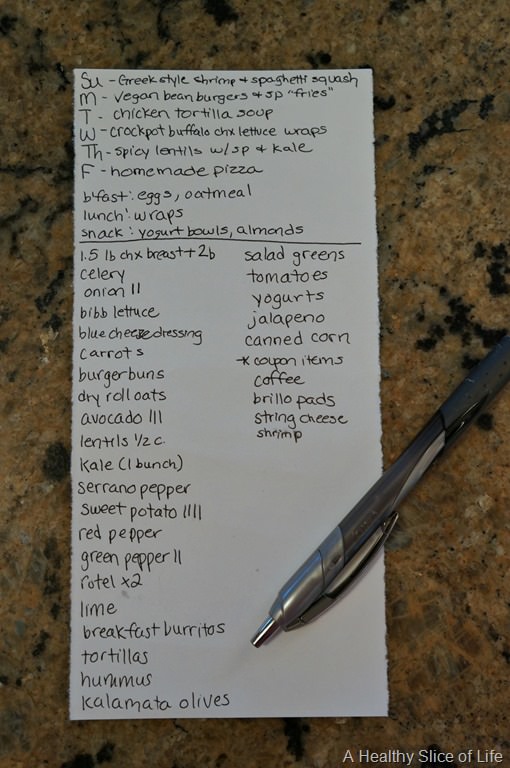 Su - Greek style shrimp + spaghetti squash
M - vegan bean burgers + sp "fries"
T - chicken tortilla soup
W - crockpot buffalo chx lettuce wraps
Th - spicy lentils w/sp + kale
F - homemade pizza
bfast: eggs, oatmeal
lunch: wraps
snack: yogurt bowls, almonds
1.5 lb chx breast + 2b
celery
onion II
bibb lettuce
blue cheese dressing
carrots
burger buns
dry roll oats
avocado III
lentils 1/2 c.
Kale (1 bunch)
serrano pepper
sweet potato IIII
red pepper
green pepper II
rotel x2
lime
breakfast burritos
tortillas
hummus
kalamata olives
salad greens
tomatoes
yogurts
jalapeno
canned corn
* coupon items
coffee
brillo pads
string cheese
shrimp
A Healthy Slice of Life